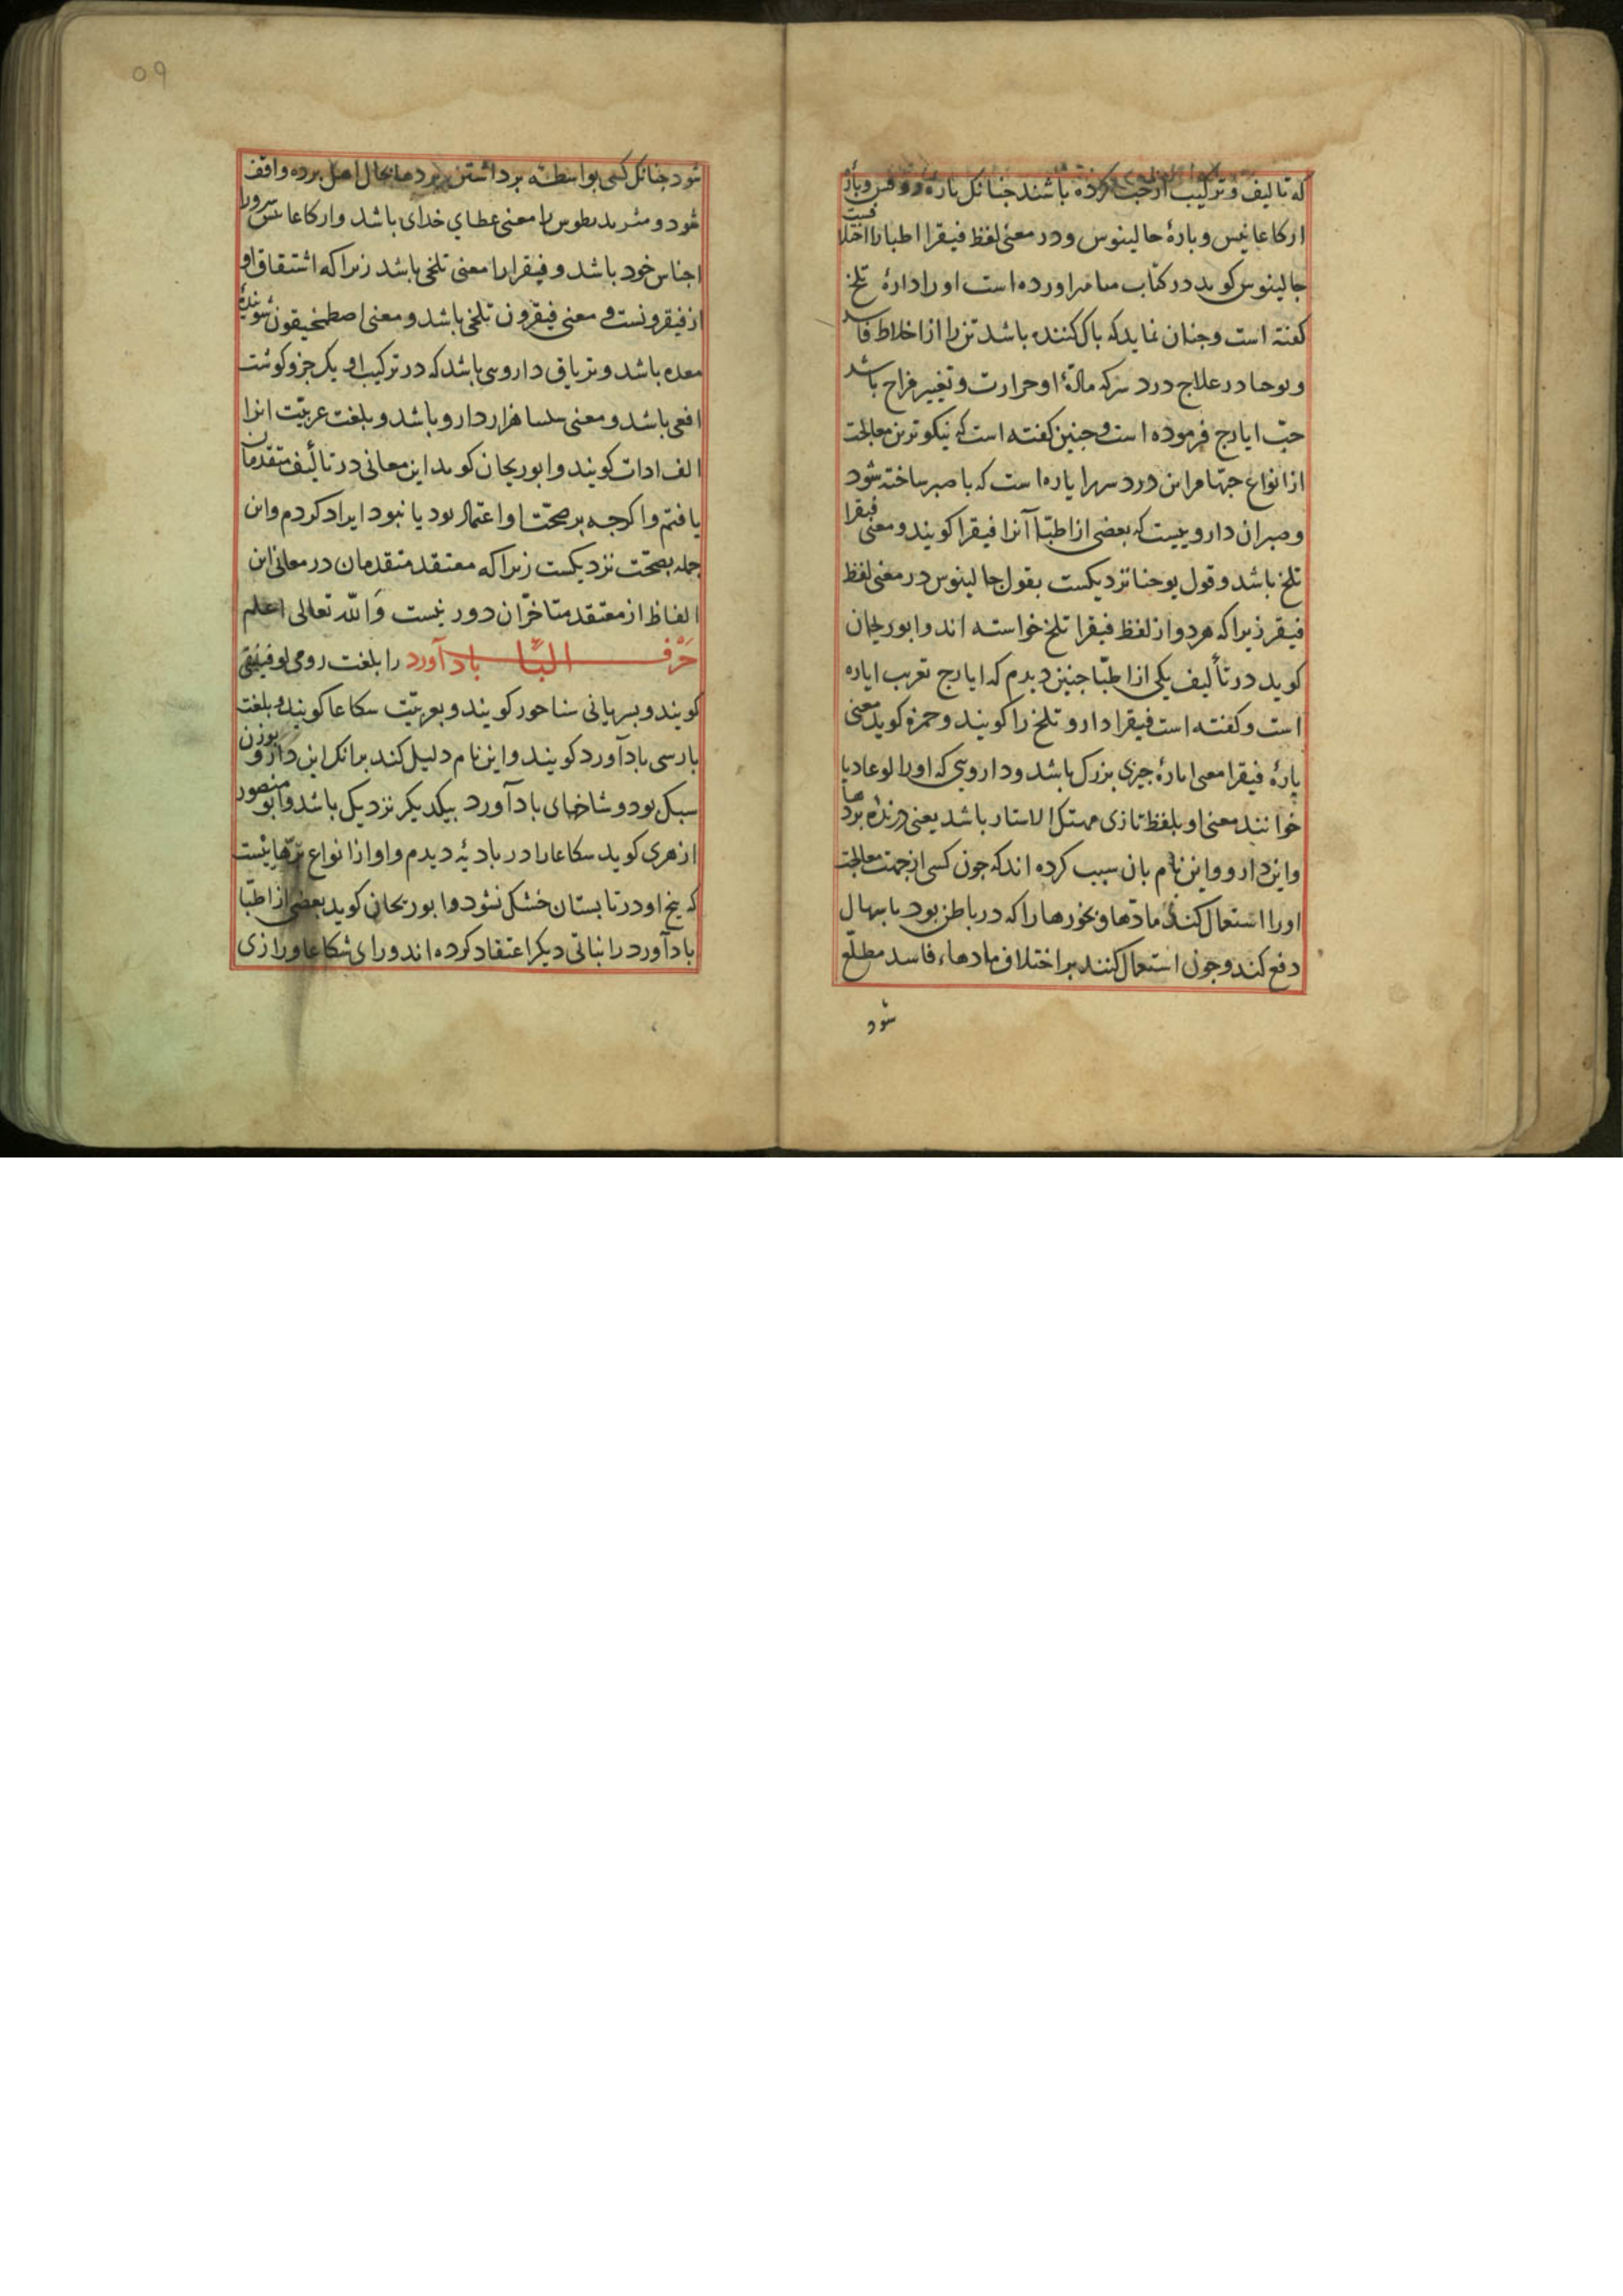 که تالیف و ترکیب ازجب کرده باشند جنانک یارهٔ روفس ویارهٔ
ارکاعانیس ویارهٔ جالینوس ودر معنی لفظ فیقرا اطبا را اختلا فیست
جالینوس کوید در کتاب میامر اورده است اورا دارهٔ تلخ
کفته است وجنان نماید که باک کننده باشد تن را از اخلاط فاسد
ویوحنا در علاج درد سر که مادّهٔ او حرارت وتغییر مزاج باشد
حبّ ایارج فرموده است وجنین کفته است که نیکوترین معالجت
از انواع جهتها مر این درد سر را یاره است که با صبر ساخته شود
وصبر ان داروییست که بعضی از اطبّا آنرا فیقرا کویند ومعنی فیقرا
تلخ باشد وقول یوحنا نزدیکست بقول جالینوس در معنی لفظ
فیقر زیرا که هردو از لفظ فیقرا تلخ خواسته اند وابوریحان
کوید در تألیف یکی از اطبّا جنین دیدم که ایارج تعریب ایاره
است وکفته است فیقرا دارو تلخ را کویند وحمزه کوید معنی
یارهٔ فیقرا معنی ایارهٔ جیزی بزرک باشد وداروی که اورا لوغادیا
خوانند معنی او بلفظ تازی مهتک الاستار باشد یعنی درنده بردها
واین دارو واین نام بان سبب کرده اند که جون کسی از جهت معالجت
اورا استعمال کند مادتها وبخورها را که در باطن بود باسهال
دفع کند وجون استعمال کنند بر اختلاف مادهاء فاسد مطلّع
شود
09
شود جنانک کسی بواسطه برداشتن بردها بحال اهل برده واقف
شود ومثریدیطوس را معنی عطای خدای باشد وارکاعانس سرور
اجناس خود باشد وفیقرا را معنی تلخی باشد زیرا که اشتقاق او
از فیقرونست و معنی فیقرون تلخی باشد ومعنی اصطمخیقون شویندهٔ
معده باشد وتریاق داروی باشد که در ترکیب او یک جزو کوشت
افعی باشد ومعنی سلسا هزار دارو باشد وبلغت عربیّت انرا
الف ادات کویند وابوریحان کوید این معانی در تألیف متقدمان
یافتم واکرجه بر صحّت او اعتماد بود یا نبود ایراد کردم واین
جمله بصحّت نزدیکست زیرا که معتقد متقدمان در معانی این
الفاظ از معتقد متاخّران دور نیست وَالله تعالی اعلم
حَرْف البّا باد آورد را بلغت رومی لوفینقی
کویند وبسریانی سناحور کویند وبعربیّت سکاعا کویند وبلغت
بارسی بادآورد کویند واین نام دلیل کند برانک این دارو بوزن
سبک بود وشاخهای بادآورد بیکدیکر نزدیک باشد وابو منصور
ازهری کوید سکاعا را در بادیهٔ دیدم واو از انواع ترّهاییست
که بیخ او در تابستان خشک نشود وابوریحان کوید بعضی از اطبّا
بادآورد را نباتی دیکر اعتقاد کرده اند ورای شکاعا ورازی